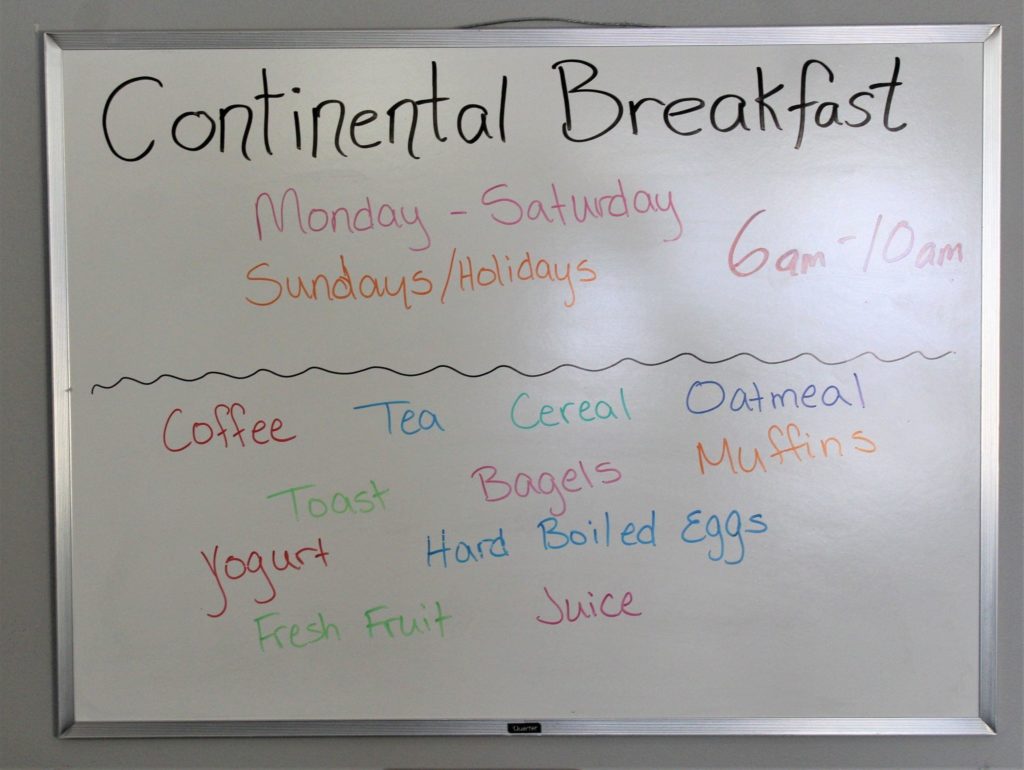 Continental Breakfast
Monday - Saturday
6am - 10am
Sundays/Holidays
Coffee Tea Cereal Oatmeal
Toast Bagels Muffins
Yogurt Hard Boiled Eggs
Fresh Fruit Juice
Quartet